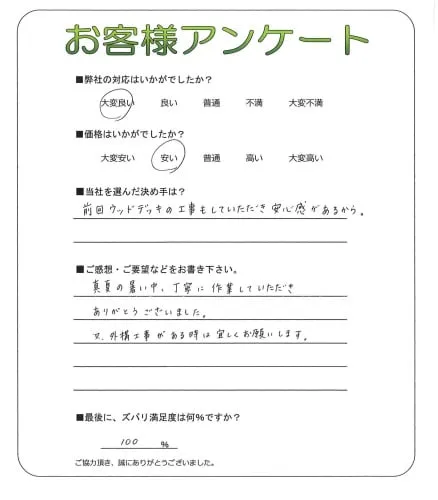 お客様アンケート
■弊社の対応はいかがでしたか?
大変良い 良い 普通 不満 大変不満
■価格はいかがでしたか?
大変安い 安い 普通 高い 大変高い
■当社を選んだ決め手は?
前回ウッドデッキの工事もしていただき安心感があるから。
■ご感想・ご要望などをお書き下さい。
真夏の暑い中、丁寧に作業していただき
ありがとうございました。
又、外構工事がある時は宜しくお願いします。
■最後に、ズバリ満足度は何%ですか?
100 %
ご協力頂き、誠にありがとうございました。